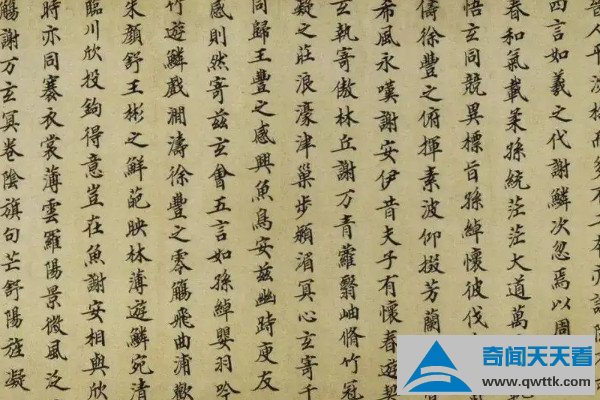 四言如羲之代謝鱗次忽焉以周
春和氣載柔孫統茫茫大道萬
悟玄同競異標旨孫綽懷彼伐
儔徐豐之俯揮素波仰掇芳蘭
希風永嘆謝安伊昔夫子有懷春遊契
玄執寄傲林丘謝万青蘿翳岫脩竹冠
凝之莊浪濠津巢步潁湄冥心玄寄千
同歸王豐之感興魚鳥安茲幽跱庾友
感則然寄茲玄會五言如孫綽嚶羽吟
竹遊鱗戲澗濤徐豐之零觴飛曲浦歡
朱顏舒王彬之鮮葩映林薄遊鱗宛清
臨川欣投鈎得意豈在魚謝安相與欣
時亦同褰衣裳薄雲羅陽景微風泛
觴謝万玄冥卷陰旗句芒舒陽旌凝
奇闻天天看
www.qwttk.com